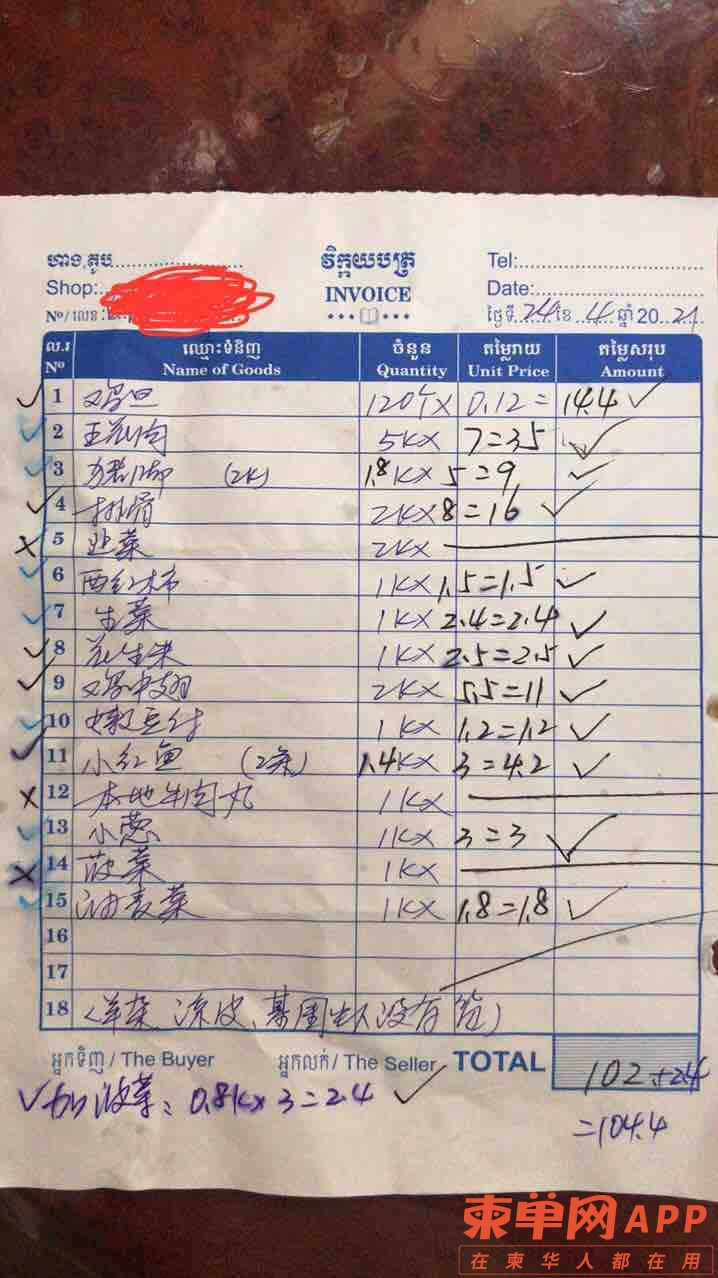 ហាង,តូប
វិក្កយបត្រ
Tel:
Shop:
INVOICE
Date:
Nº/លេខ:
ថ្ងៃទី 24 ខែ 4 ឆ្នាំ 2021
ល.រ ឈ្មោះទំនិញ ចំនួន តម្លៃរាយ តម្លៃសរុប
Nº Name of Goods Quantity Unit Price Amount
✓ 1 鸡旦 120个× 0.12= 14.4 ✓
✓ 2 五花肉 5K× 7=35 ✓
✓ 3 猪脚 (2K) 1.8K× 5=9 ✓
✓ 4 排骨 2K× 8=16 ✓
× 5 韭菜 2K×
✓ 6 西红柿 1K× 1.5=1.5 ✓
✓ 7 生菜 1K× 2.4=2.4 ✓
✓ 8 花生米 1K× 2.5=2.5 ✓
✓ 9 鸡中翅 2K× 5.5=11 ✓
✓ 10 嫩豆付 1K× 1.2=1.2 ✓
✓ 11 小红鱼 (2条) 1.4K× 3=4.2 ✓
× 12 本地牛肉丸 1K×
✓ 13 小葱 1K× 3=3 ✓
× 14 菠菜 1K×
✓ 15 油麦菜 1K× 1.8=1.8 ✓
16
17
18 (羊杂 凉皮、 没有
អ្នកទិញ / The Buyer អ្នកលក់ / The Seller TOTAL 102+2.4
✓加菠菜: 0.8K×3=2.4 ✓
=104.4
柬单网APP
在柬华人都在用